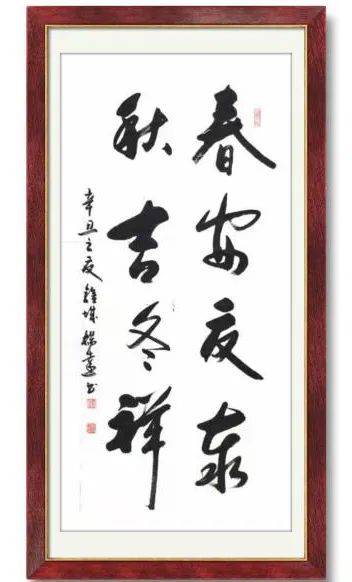 春安夏泰
秋吉冬祥
辛丑之夏
书